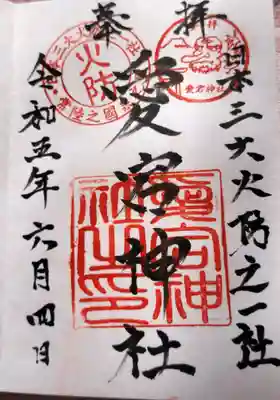 奉拝
日本三大火防之一社
愛宕神社
令和五年六月四日
火防
愛宕神社
愛宕神
社之印